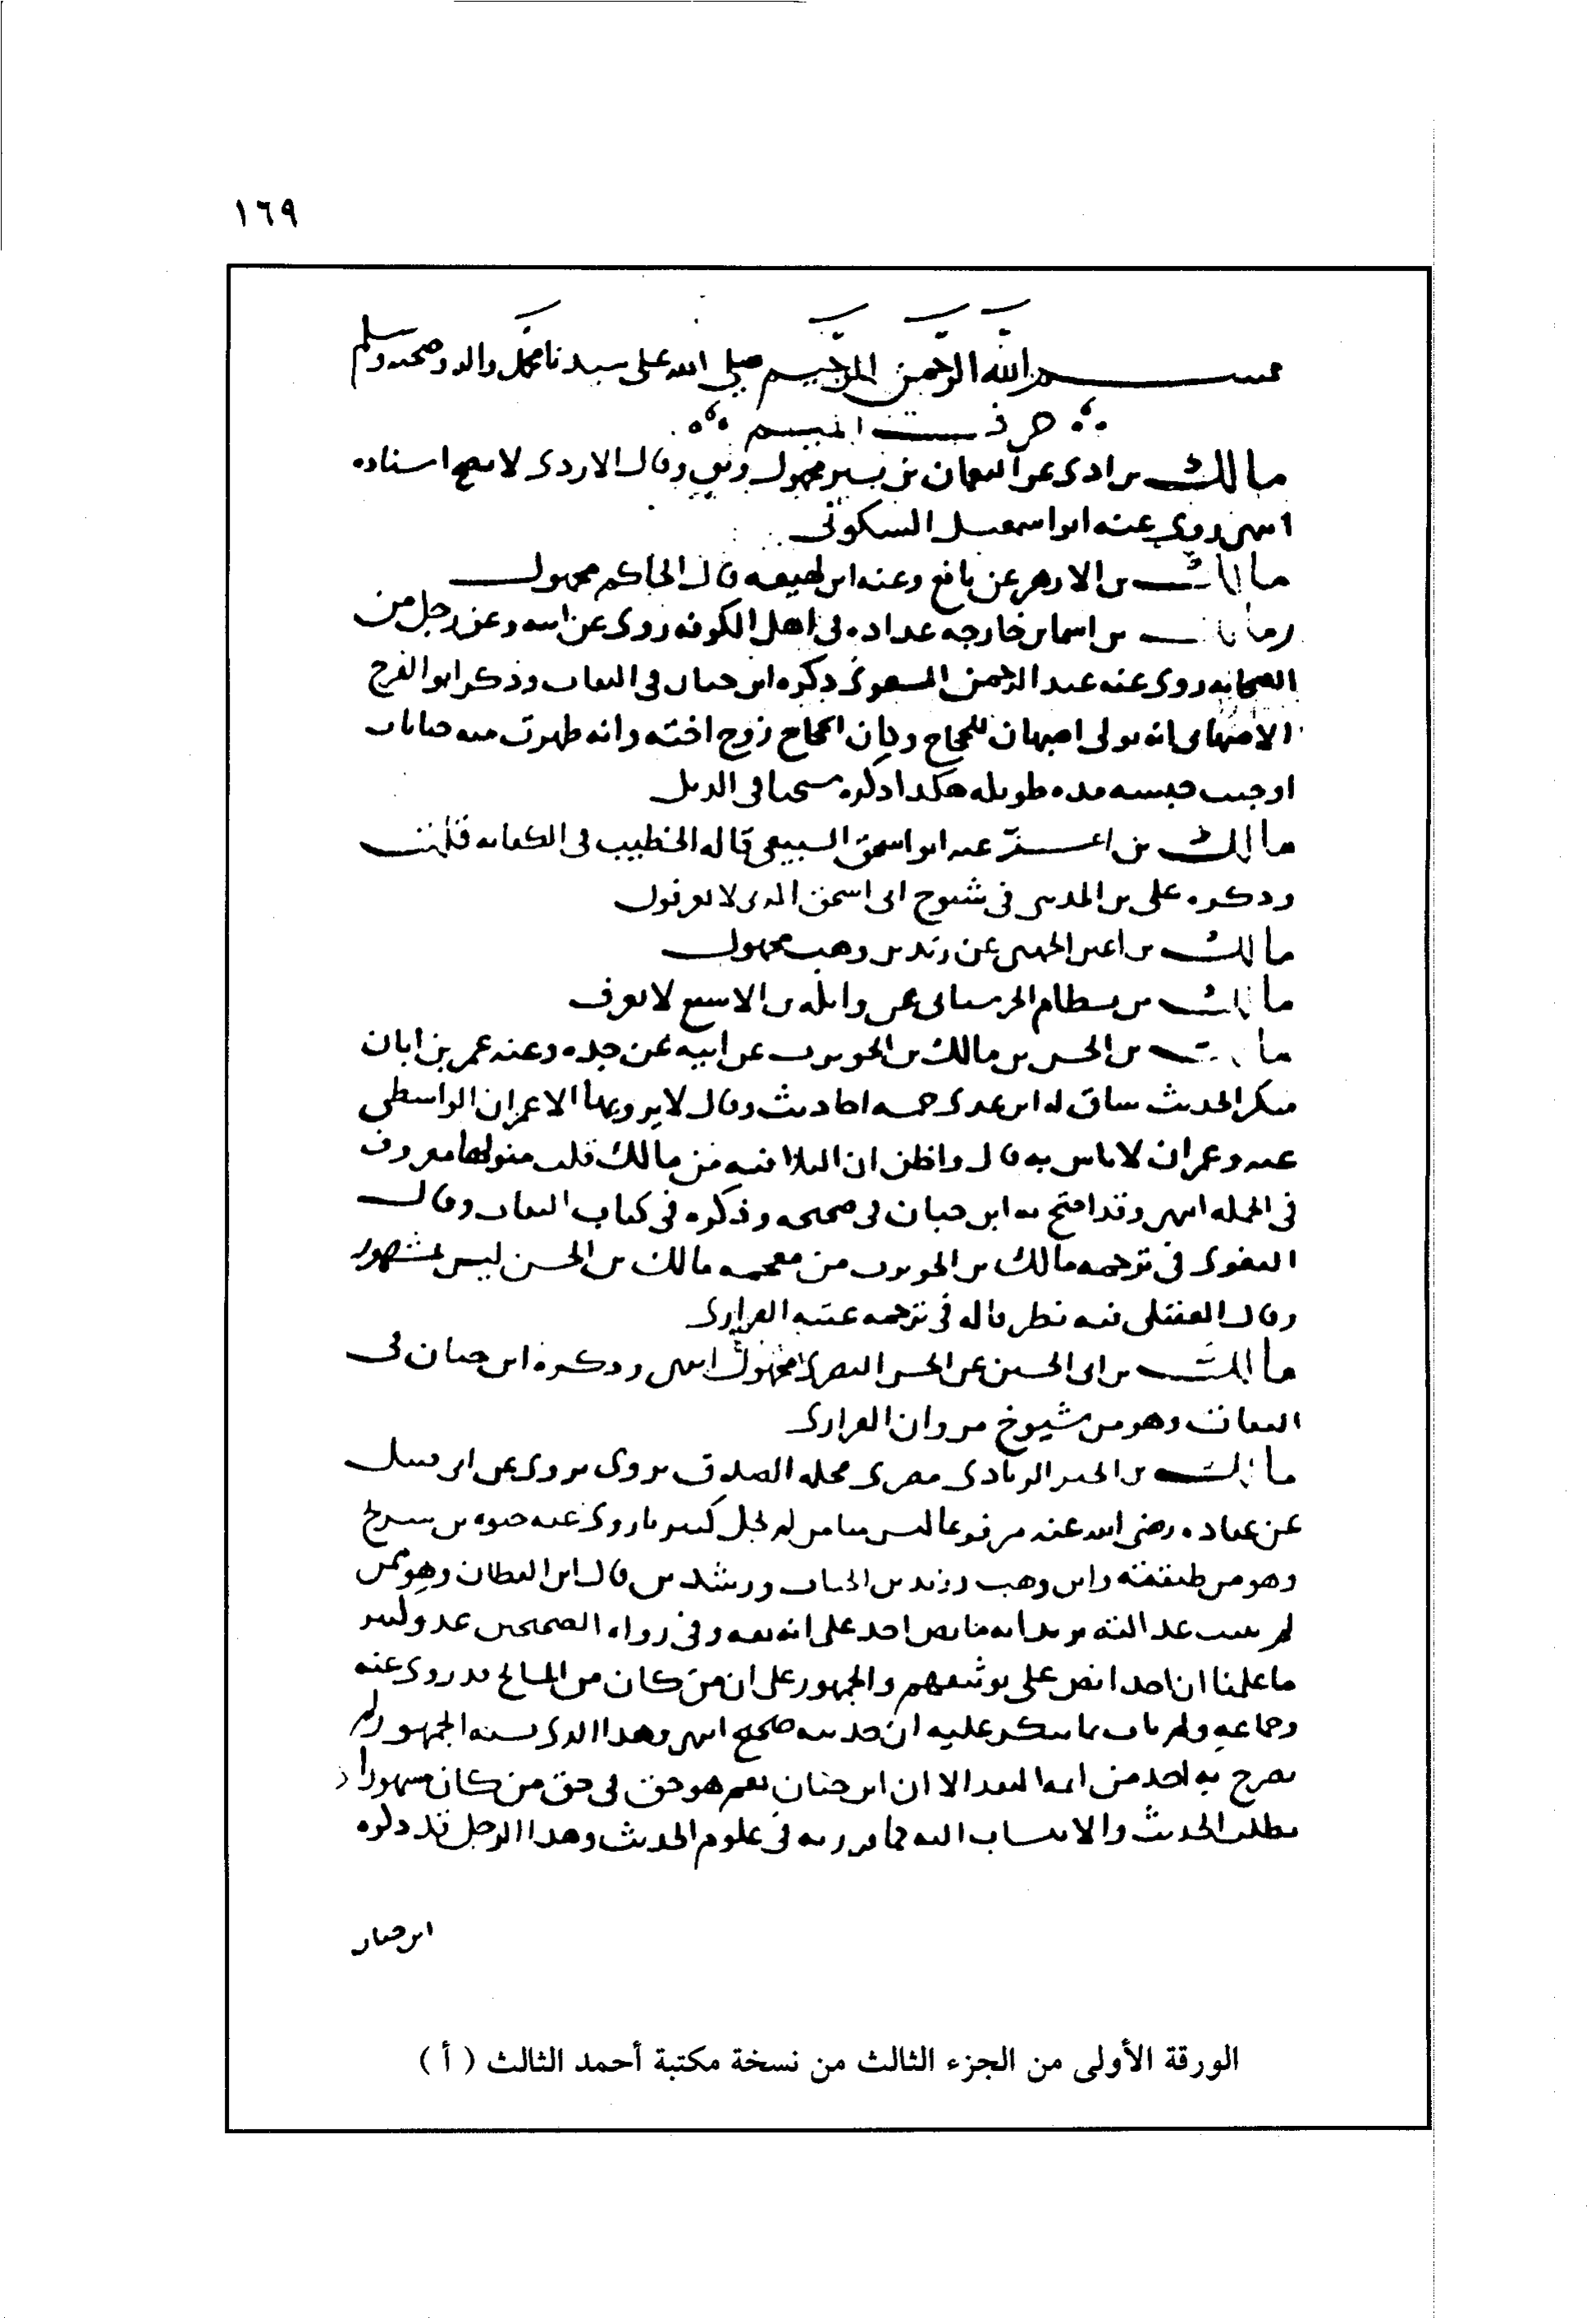 ١٦٩
بسم الله الرحمن الرحيم صلى الله على سيدنا محمد واله وصحبه وسلم
حرف الميم
مالك بن ادى عن النعمان بن بشير مجهول وثق وقال الازدى لا يصح اسناده
انتهى روى عنه ابو اسمعيل السكونى
مالك بن الازهر عن نافع وعنه ابن لهيعه قال الحاكم مجهول
مالك بن اسما بن خارجه عداده فى اهل الكوفه روى عن ابيه وعن رجل من
الصحابه روى عنه عبد الرحمن المسعودى ذكره ابن حبان فى الثقات وذكر ابو الفرج
الاصبهانى انه تولى اصبهان للحجاج وكان الحجاج زوج اخته وانه ظهرت منه خيانات
اوجبت حبسه مده طويله هكذا ذكره شيخنا فى الذيل
مالك بن اغر عنه ابو اسحق السبيعى قاله الخطيب فى الكفايه قلت
وذكره على بن المدينى فى شيوخ ابى اسحق الذى لا يعرفون
مالك بن اعين الجهنى عن زيد بن وهب مجهول
مالك بن بسطام الحرستانى عن واثله بن الاسقع لا يعرف
مالك بن الحسن بن مالك بن الحويرث عن ابيه عن جده وعنه عمر بن ابان
منكر الحديث ساق له ابن عدى خمسه احاديث وقال لا يرويها الا عمران الواسطى
عنه وعمران لا باس به قال واظن ان البلا فيه من مالك قلت متونها معروف
فى الجمله انتهى وقد احتج به ابن حبان فى صحيحه وذكره فى كتاب الثقات وقال
البغوى فى ترجمه مالك بن الحويرث من معجمه مالك بن الحسن ليس بمشهور
وقال العقيلى فيه نظر قاله فى ترجمه عتبه الفزارى
مالك بن ابى الحسن عن الحسن البصرى مجهول انتهى وذكره ابن حبان فى
الثقات وهو من شيوخ مروان الفزارى
مالك بن الخير الزبادى مصرى محله الصدق يروى يروى عن ابى قبيل
عن عباده رضى الله عنه مرفوعا ليس منا من لم يجل كبيرنا روى عنه حيوه بن شريح
وهو من طبقته وابن وهب وزيد بن الحباب ورشدين قال ابن القطان وهو ممن
لم يثبت عدالته يريد انه ما نص احد على انه ثقه وفى رواه الصحيحين عدد كثير
ما علمنا ان احدا نص على توثيقهم والجمهور على ان من كان من المشايخ قد روى عنه
جماعه ولم يات بما ينكر عليه ان حديثه صحيح انتهى وهذا الذى نسبه الجمهور لم
يصرح به احد من ائمه النقد الا ان ابن حبان نعم هو حق فى حق من كان مشهورا
بطلب الحديث والانتساب اليه كما قررته فى علوم الحديث وهذا الرجل قد ذكره
ابن حبان
الورقة الأولى من الجزء الثالث من نسخة مكتبة أحمد الثالث ( أ )